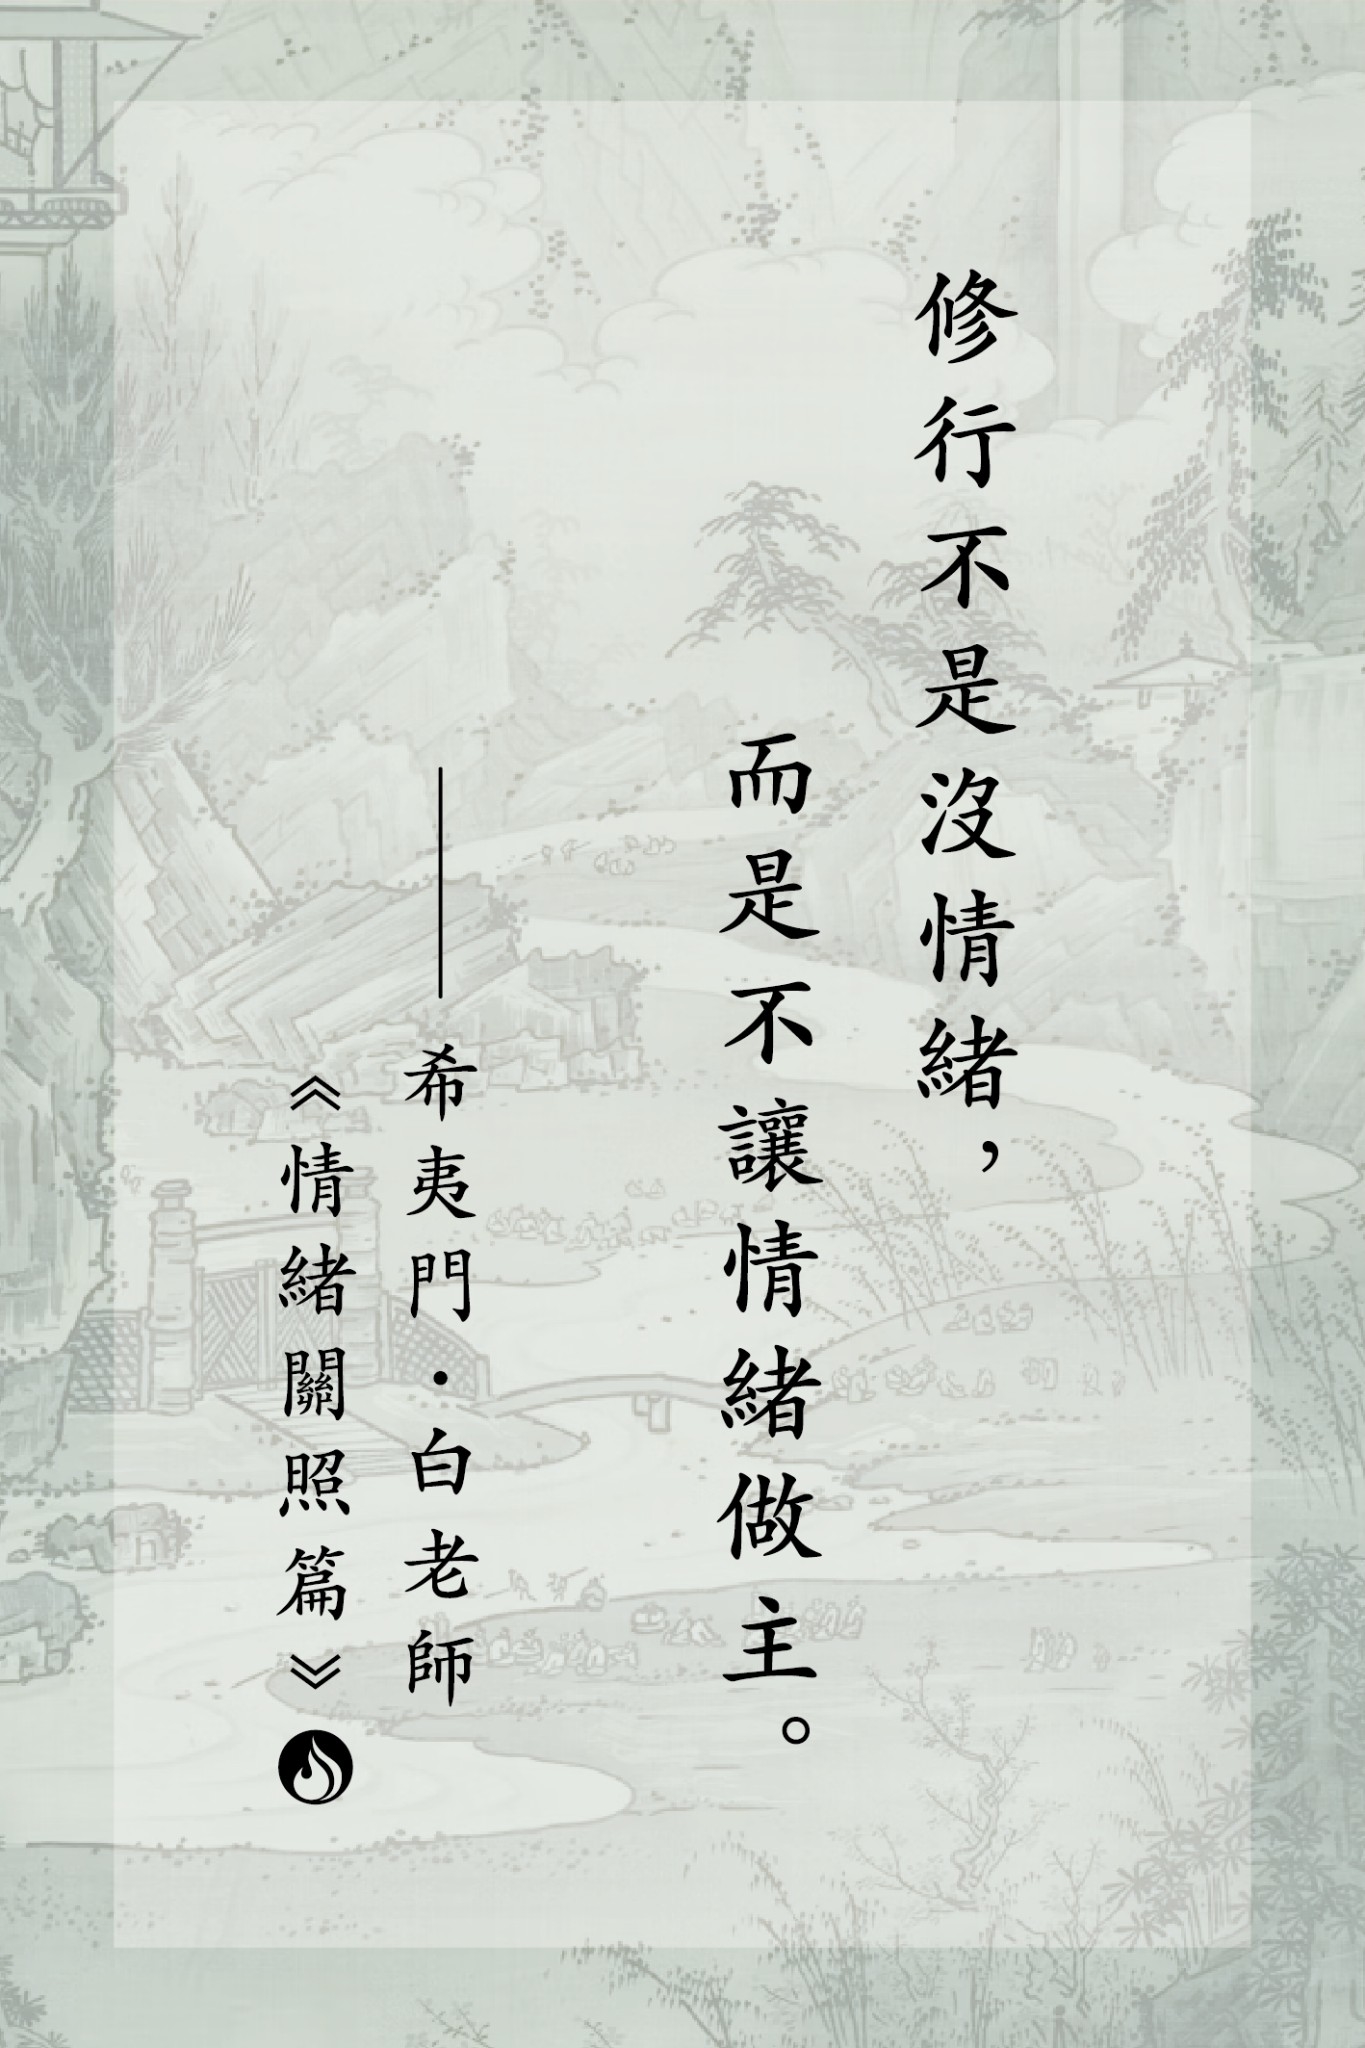 修行不是沒情緒，
而是不讓情緒做主。
——希夷門・白老師
《情緒關照篇》